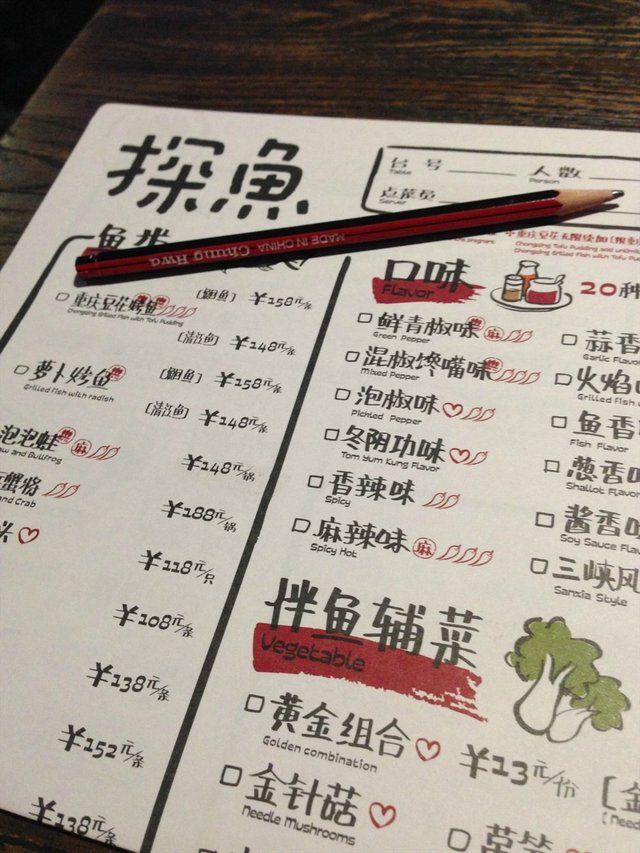 探魚
台号 人数
Table Person
点菜员
Server
MADE IN CHINA Chung Hwa
鱼类
重庆豆花烤鱼 [鮰鱼] ¥158元/条
Chongqing Grilled Fish with Tofu Pudding
[清江鱼] ¥148元/条
萝卜烤鱼 [鮰鱼] ¥158元/条
Grilled fish with radish
[清江鱼] ¥148元/条
泡泡蛙 麻 ¥148元/锅
and Bullfrog
蟹将 ¥188元/锅
and Crab
头 ¥118元/只
¥108元/条
¥138元/条
¥152元/条
¥138元/条
口味
Flavor
20种
鲜青椒味 麻
Green Pepper
混椒馋嘴味
Mixed Pepper
泡椒味
Pickled Pepper
冬阴功味
Tom Yum Kung Flavor
香辣味
Spicy
麻辣味 麻
Spicy Hot
蒜香
Garlic Flavor
火焰
Grilled fish
鱼香
Fish Flavor
葱香
Shallot Flavor
酱香味
Soy Sauce Fla
三峡风
Sanxia Style
伴鱼辅菜
Vegetable
黄金组合 ¥13元/份
Golden combination
金针菇
Needle Mushrooms